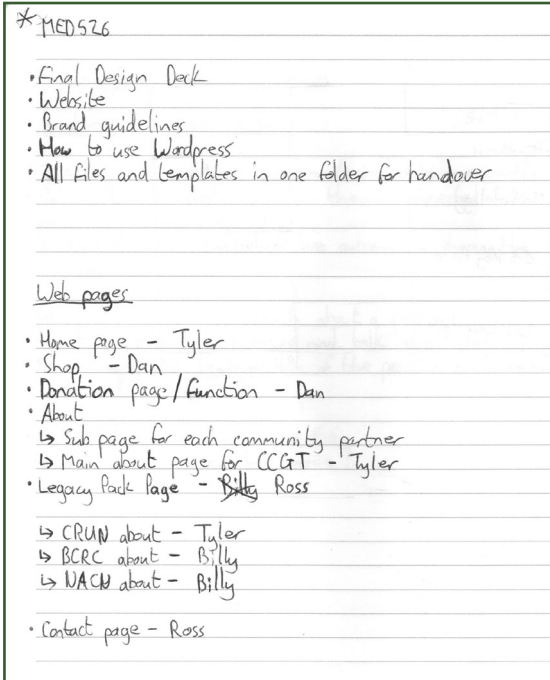 * MED526
• Final Design Deck
• Website
• Brand guidelines
• How to use Wordpress
• All files and templates in one folder for handover
Web pages
• Home page - Tyler
• Shop - Dan
• Donation page/function - Dan
• About
↳ Sub page for each community partner
↳ Main about page for CCGT - Tyler
• Legacy Pack Page - Billy Ross
↳ CRUN about - Tyler
↳ BCRC about - Billy
↳ NACN about - Billy
• Contact page - Ross